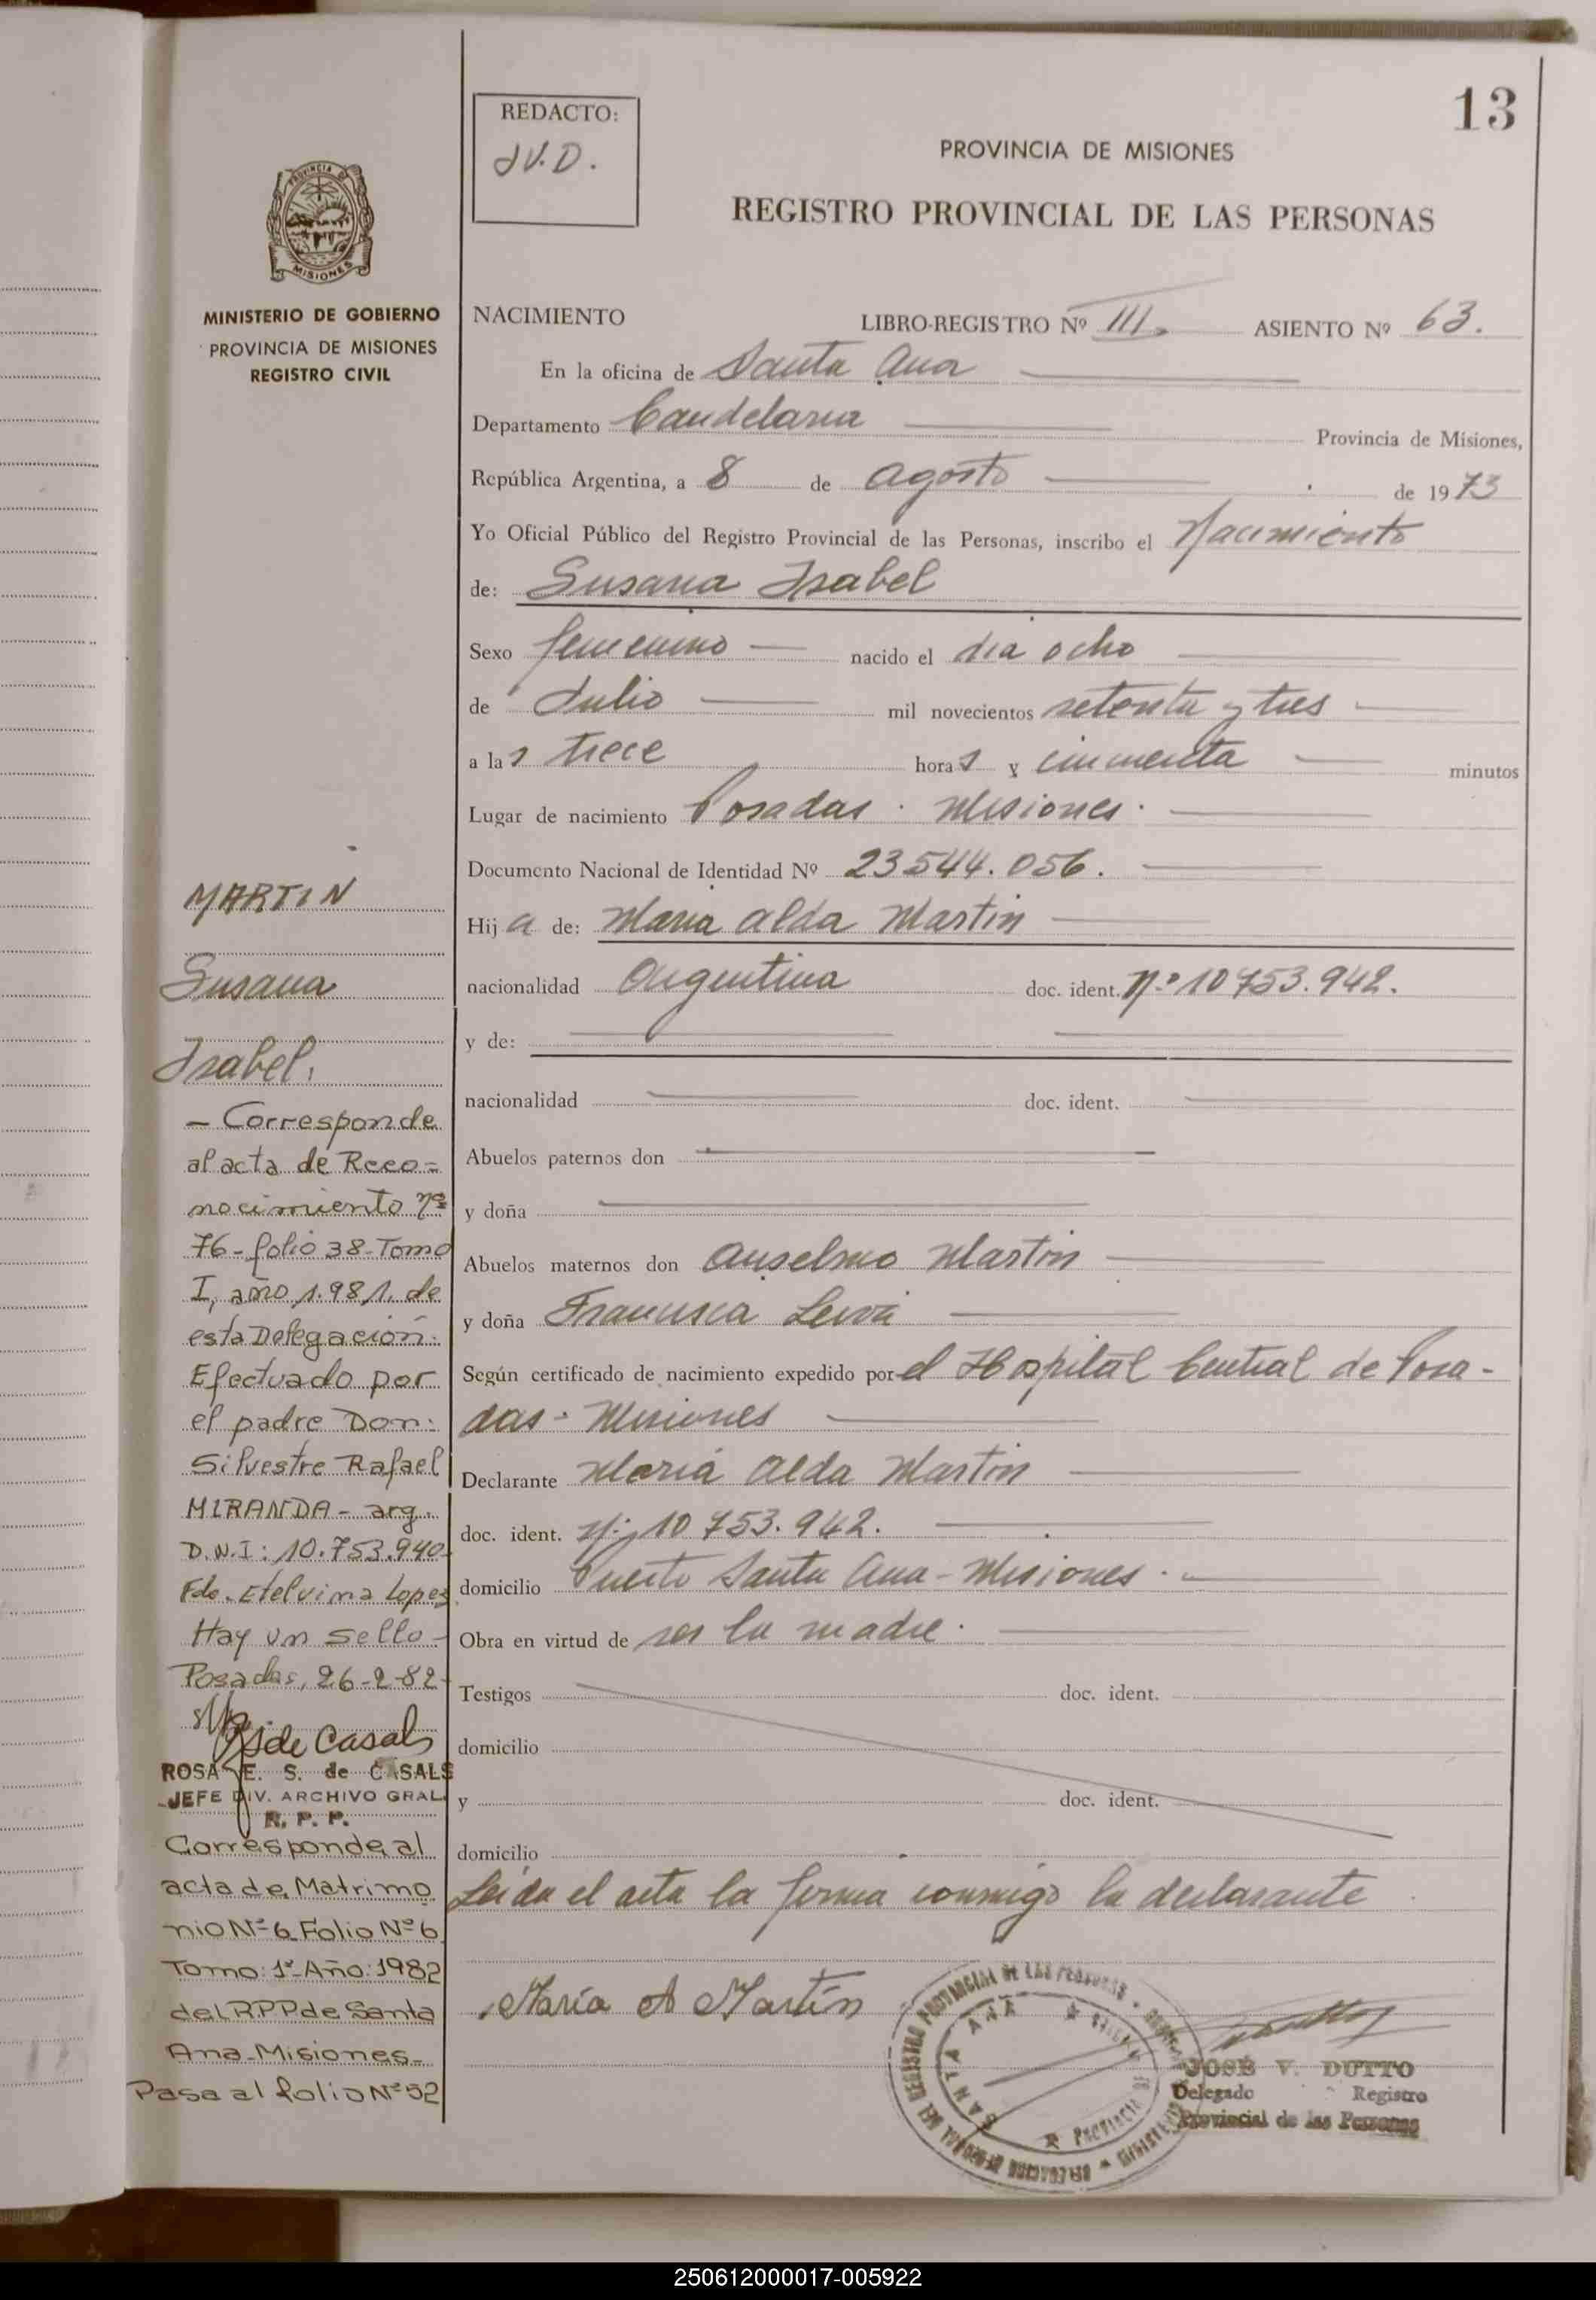 13
REDACTO:
J.V.D.
PROVINCIA DE MISIONES
REGISTRO PROVINCIAL DE LAS PERSONAS
MISIONES
MINISTERIO DE GOBIERNO
PROVINCIA DE MISIONES
REGISTRO CIVIL
NACIMIENTO LIBRO-REGISTRO Nº III. ASIENTO Nº 63.
En la oficina de Santa Ana
Departamento Candelaria Provincia de Misiones,
República Argentina, a 8 de agosto de 1973
Yo Oficial Público del Registro Provincial de las Personas, inscribo el Nacimiento
de: Susana Isabel
Sexo femenino nacido el dia ocho
de Julio mil novecientos setenta y tres
a las trece horas y cincuenta minutos
Lugar de nacimiento Posadas. Misiones.
Documento Nacional de Identidad Nº 23544.056.
Hija de: Maria Alda Martin
nacionalidad Argentina doc. ident. Nº 10753.942.
y de:
nacionalidad doc. ident.
Abuelos paternos don
y doña
Abuelos maternos don Anselmo Martin
y doña Francisca
Según certificado de nacimiento expedido por el Hospital Central de Posa-
das - Misiones
Declarante María Alda Martin
doc. ident. Nº 10753.942.
domicilio Puerto Santa Ana - Misiones.
Obra en virtud de ser la madre.
Testigos doc. ident.
domicilio
y doc. ident.
domicilio
Leida el acta la firma conmigo la declarante
María A Martín
JOSÉ V. DUTTO
Delegado Registro
Provincial de las Personas
SANTA ANA
MARTIN
Susana
Isabel.
- Corresponde
al acta de Reco=
nocimiento nº
76- folio 38-Tomo
I, año 1.981. de
esta Delegación.
Efectuado por
el padre Don:
Silvestre Rafael
MIRANDA - arg.
D.N.I: 10.753.940-
Fdo. Etelvina Lopez
Hay un sello-
Posadas, 26-2-82-
S de Casals
ROSA E. S. de CASALS
JEFE DIV. ARCHIVO GRAL.
R. P. P.
Corresponde al
acta de Matrimo
nio Nº 6 Folio Nº 6
Tomo: 1º-Año: 1982
del RPP de Santa
Ana-Misiones-
Pasa al folio Nº 52
250612000017-005922